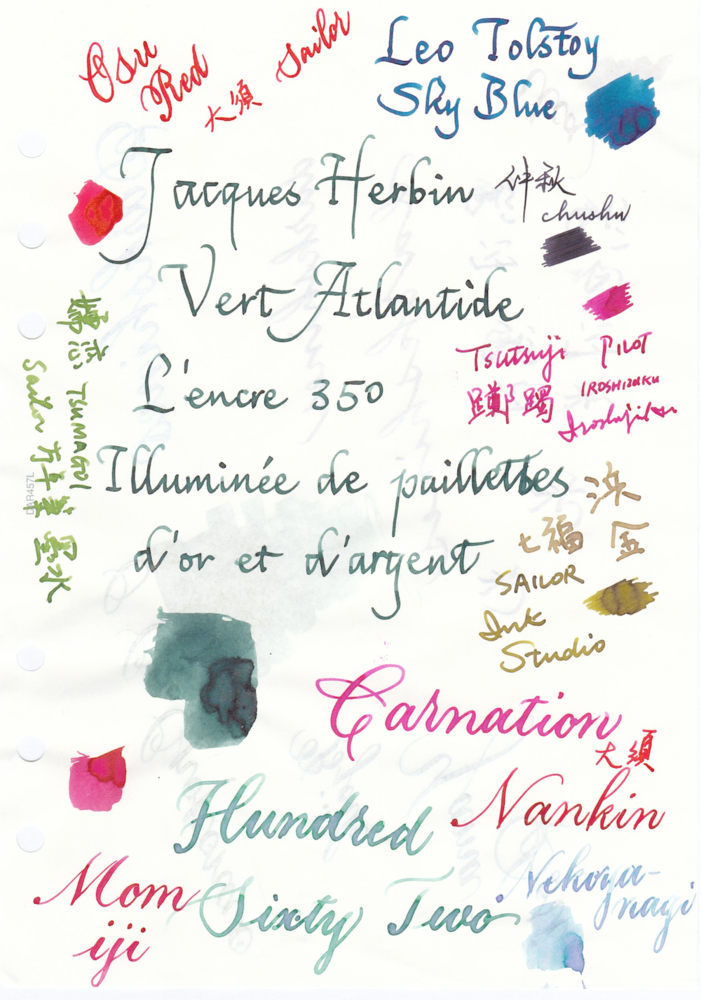 Osu
Red
大須
Sailor
Leo Tolstoy
Sky Blue
Jacques Herbin
仲秋
chushu
Vert Atlantide
L'encre 350
Tsutsuji
PILOT
躑躅
IROSHIZUKU
Illuminée de paillettes
d'or et d'argent
TSUMAGOI
Sailor
墨水
七福
金
SAILOR
Ink
Studio
Carnation
大須
Nankin
Hundred
Sixty Two
Mom
iji
Nekoya-
nagi